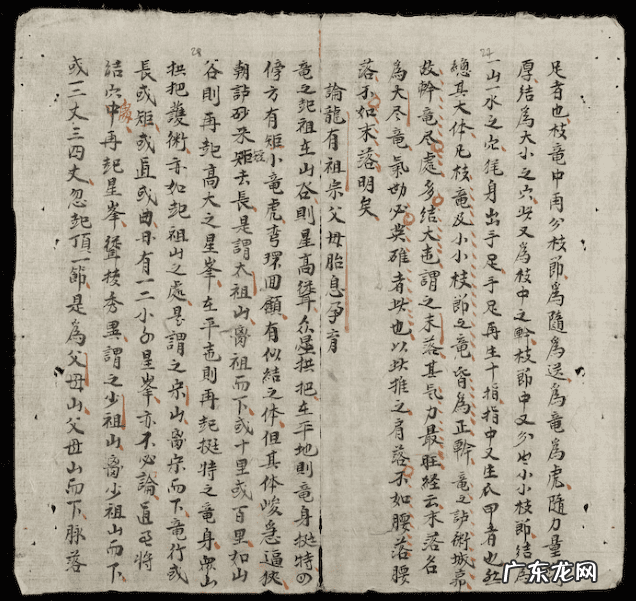 足者也枝竜中用分枝節為隨為送為竜為虎隨力量
厚結為大小之穴此又為枝中之幹枝節中又分出小小枝節結為
一山一水之穴猶身出手足手足再生十指指中又生爪甲者也然
總其大体凡枝竜及小小枝節之竜皆為正幹竜之護衛城
故幹竜尽處多結大地謂之末落其氣力最旺経云末落名
為大尽竜氣必英雄者此也以此推之肩落不如腰落腰
落不如末落明矣
論龍有祖宗父母胎息孕育
竜之起祖在山谷則星高聳众星拱把在平地則竜身挺特四
傍方有矩小竜虎弯環回顧有似結之体但其体峻急逼狹
朝砂矩去長是謂太祖山离祖而下或十里或百里如山
谷則再起高大之星峯在平地則再起挺特之竜身众山
拱把護衛亦如起祖山之處是謂之宗山离宗而下竜行或
長或矩或直或曲有一二小星峯亦不必論直至將
結穴處中再起星峯聳拔秀異謂之少祖山离少祖山而下
或一二丈三四丈忽起頂一節是為父母山父母山而下脉落
27
28
广东龙网